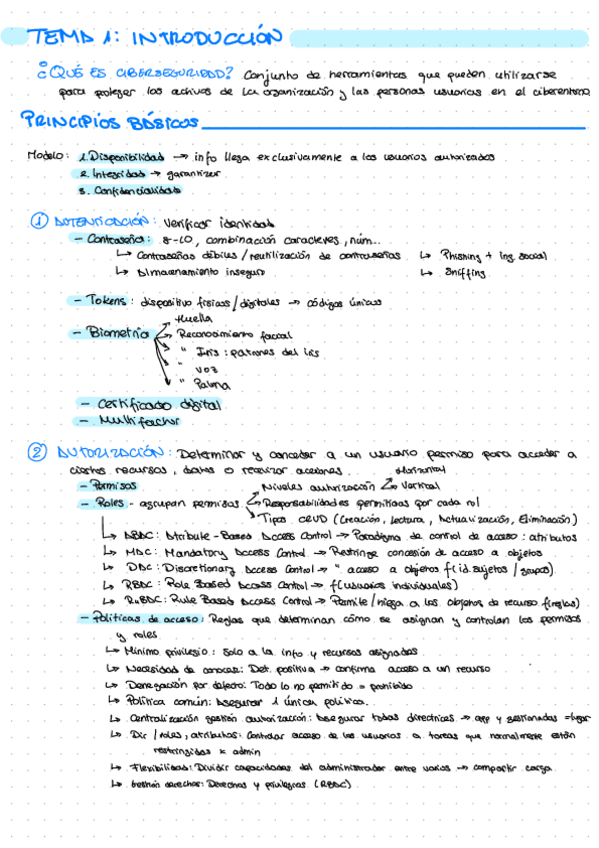 TEMA 1: INTRODUCCIÓN
¿QUÉ ES CIBERSEGURIDAD? Conjunto de herramientas que pueden utilizarse
para proteger los activos de la organización y las personas usuarias en el ciberentorno
PRINCIPIOS BÁSICOS
Modelo: 1. Disponibilidad → info llega exclusivamente a los usuarios autorizados
2. Integridad → garantizar
3. Confidencialidad
① AUTENTICACIÓN: Verificar identidad
- Contraseña: 8-10, combinación caracteres, núm...
↳ Contraseñas débiles / reutilización de contraseñas ↳ Phishing + ing. social
↳ Almacenamiento inseguro ↳ Sniffing
- Tokens: dispositivo físicos / digitales → códigos únicos
- Biometría → Huella
→ Reconocimiento facial
→ " Iris: patrones del iris
→ " voz
→ " Palma
- Certificado digital
- Multifactor
② AUTORIZACIÓN: Determinar y conceder a un usuario permiso para acceder a
ciertos recursos, datos o realizar acciones.
- Permisos
- Roles - agrupan permisos → Niveles autorización → Horizontal
→ Vertical
→ Responsabilidades permitidas por cada rol
→ Tipos CRUD (Creación, Lectura, Actualización, Eliminación)
↳ ABAC: Atribute-Based Access Control → Paradigma de control de acceso: atributos
↳ MAC: Mandatory Access Control → Restringe concesión de acceso a objetos
↳ DAC: Discretionary Access Control → " acceso a objetos f(id.sujetos / grupos).
↳ RBAC: Role Based Access Control → f(usuarios individuales)
↳ RuBAC: Rule Based Access Control → Permite/niega a los objetos de recurso f(reglas)
- Políticas de acceso: Reglas que determinan cómo se asignan y controlan los permisos
y roles
↳ Mínimo privilegio: Solo a la info y recursos asignados
↳ Necesidad de conocer: Det. positiva → confirma acceso a un recurso
↳ Denegación por defecto: Todo lo no permitido = prohibido
↳ Política común: Asegurar 1 única política.
↳ Centralización gestión autorización: Asegurar todas directrices → app y gestionadas = lugar
↳ Dir / roles, atributos: Controlar acceso de los usuarios a tareas que normalmente están
restringidas x admin
↳ Flexibilidad: Dividir capacidades del administrador entre varios → compartir carga
↳ Gestión derechos: Derechos y privilegios (RBAC)